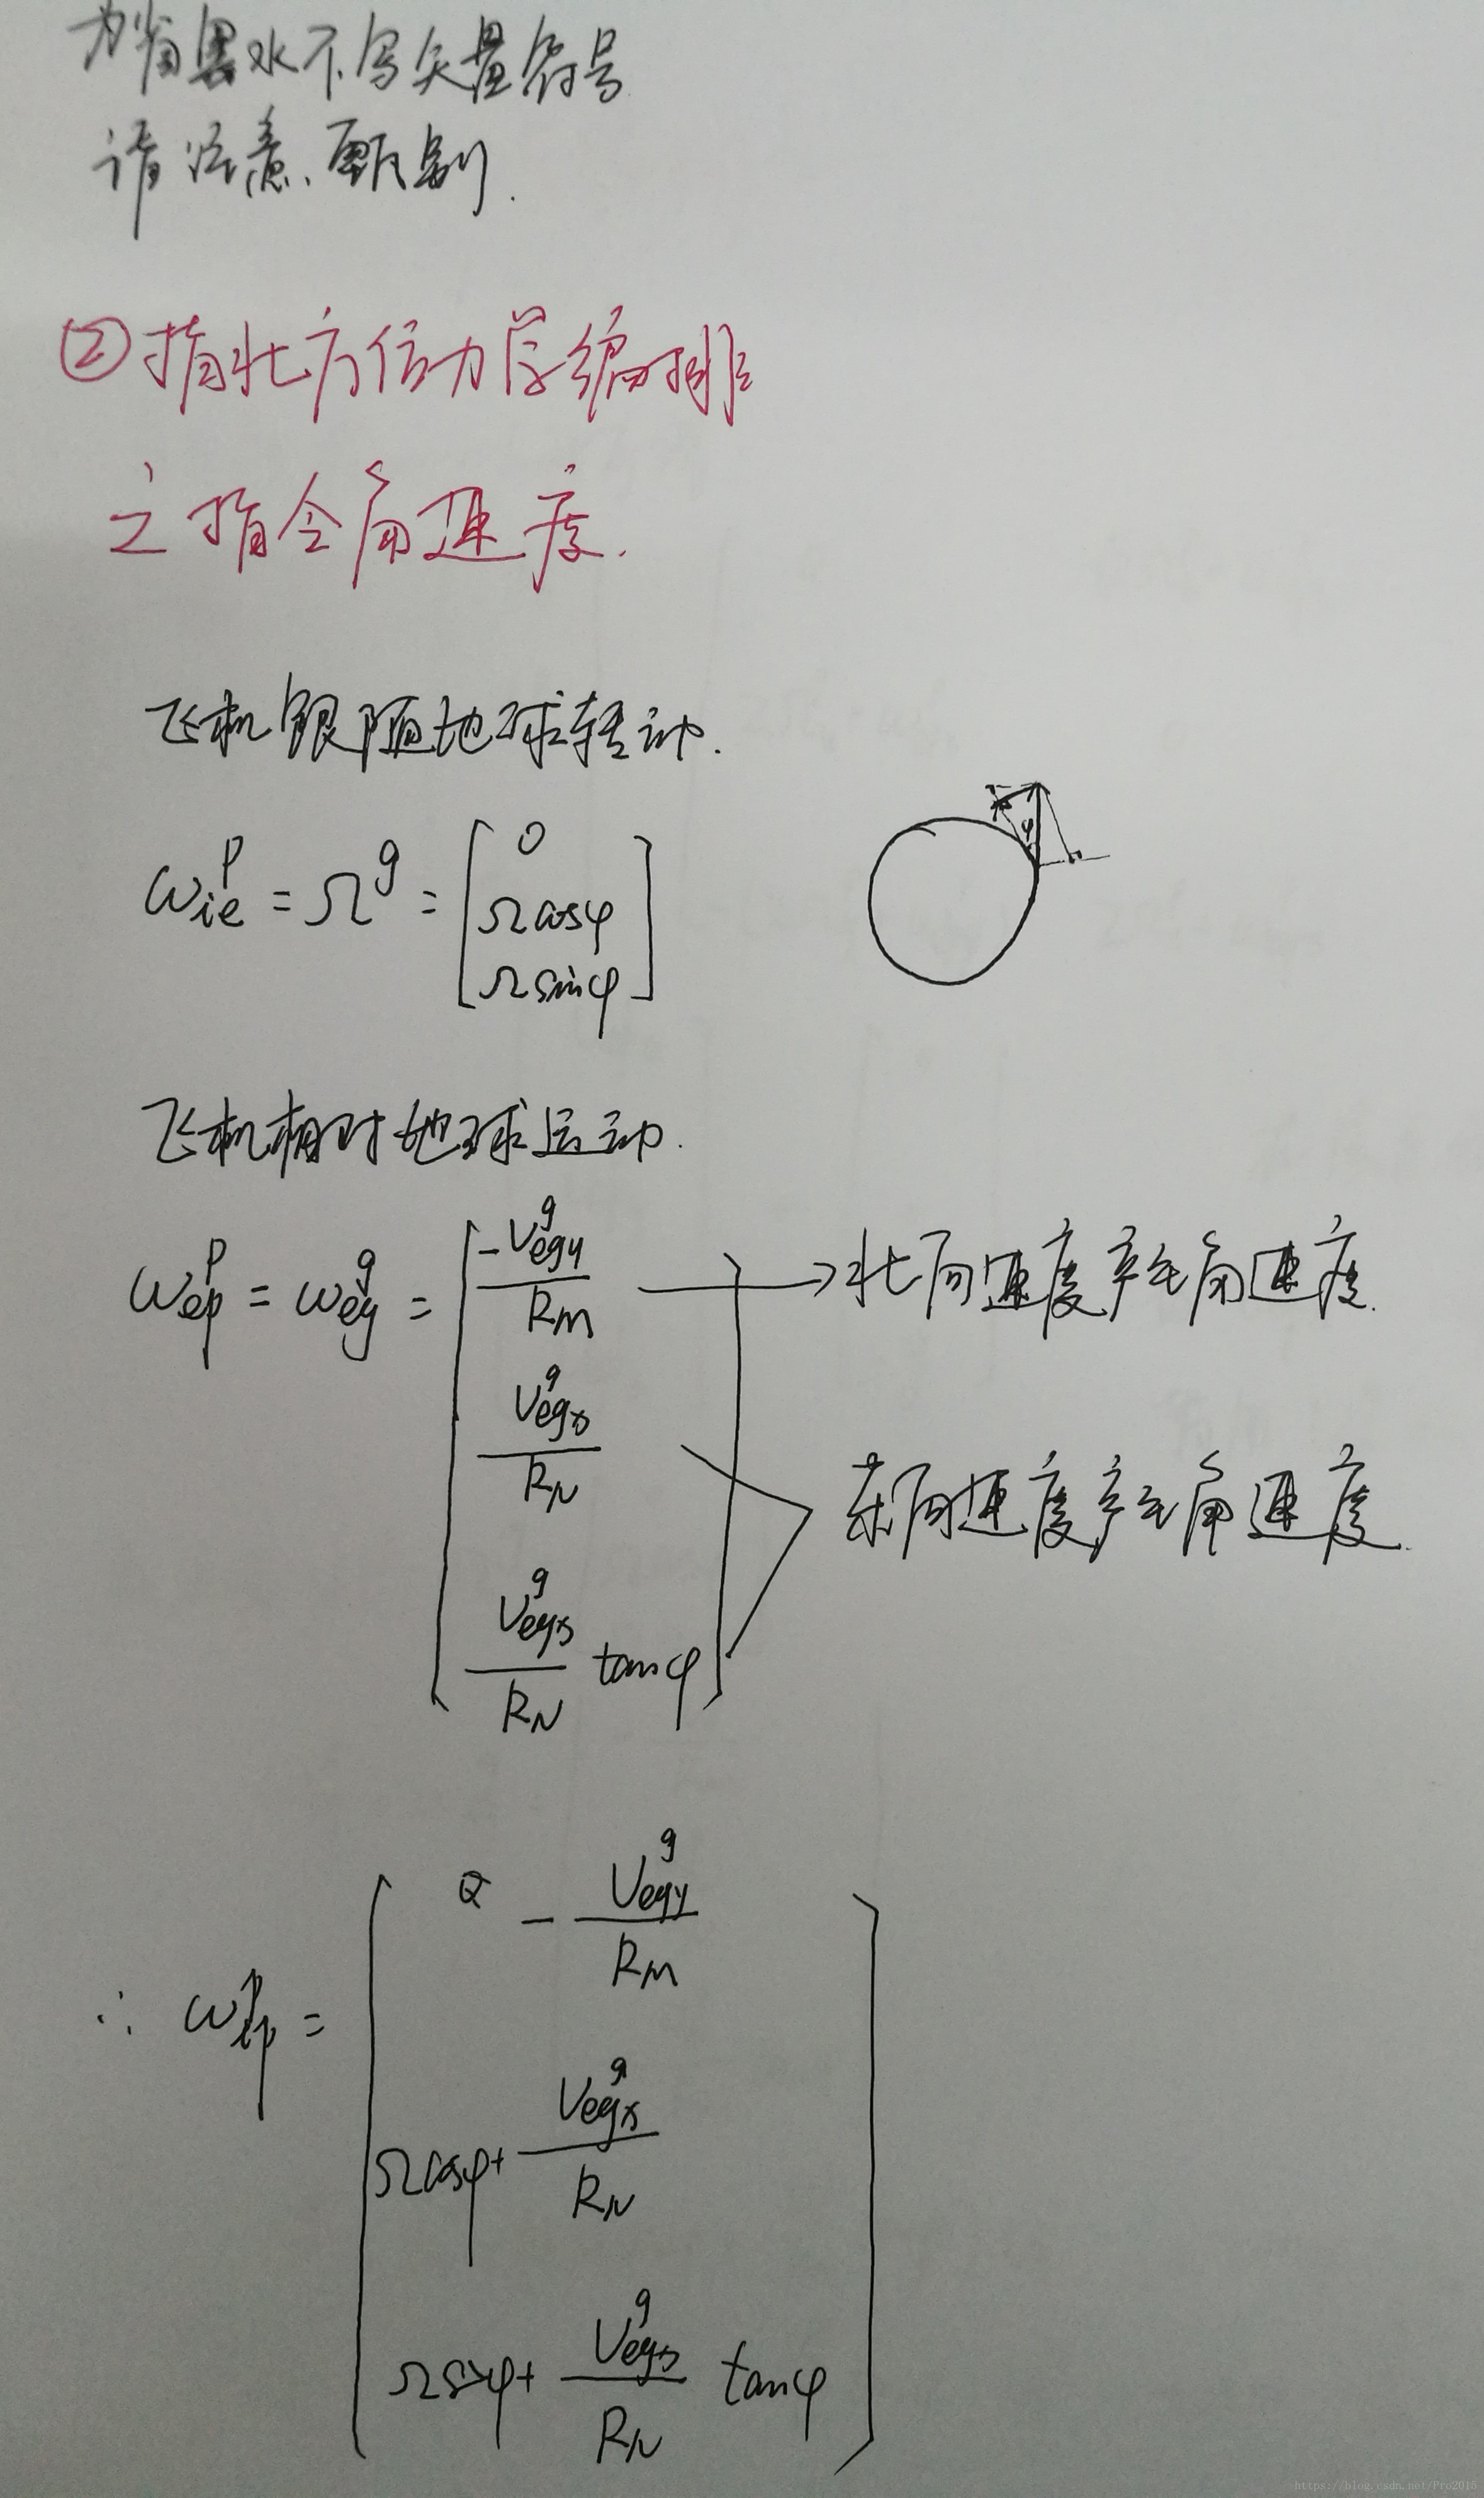 为省墨水不写矢量符号
请注意、甄别.
②指北方位力学编排
之指令角速度.
飞机跟随地球转动.
φ
ω_ie^p = Ω^g = [0
Ωcosφ
Ωsinφ]
飞机相对地球运动.
ω_ep^p = ω_eg^g = [-V_egy^g / R_M → 北向速度产生角速度.
V_egx^g / R_N
东向速度产生角速度.
V_egx^g / R_N tanφ]
∴ ω_ip^p = [- V_egy^g / R_M
Ωcosφ + V_egx^g / R_N
Ωsinφ + V_egx^g / R_N tanφ]
https://blog.csdn.net/Pro2015